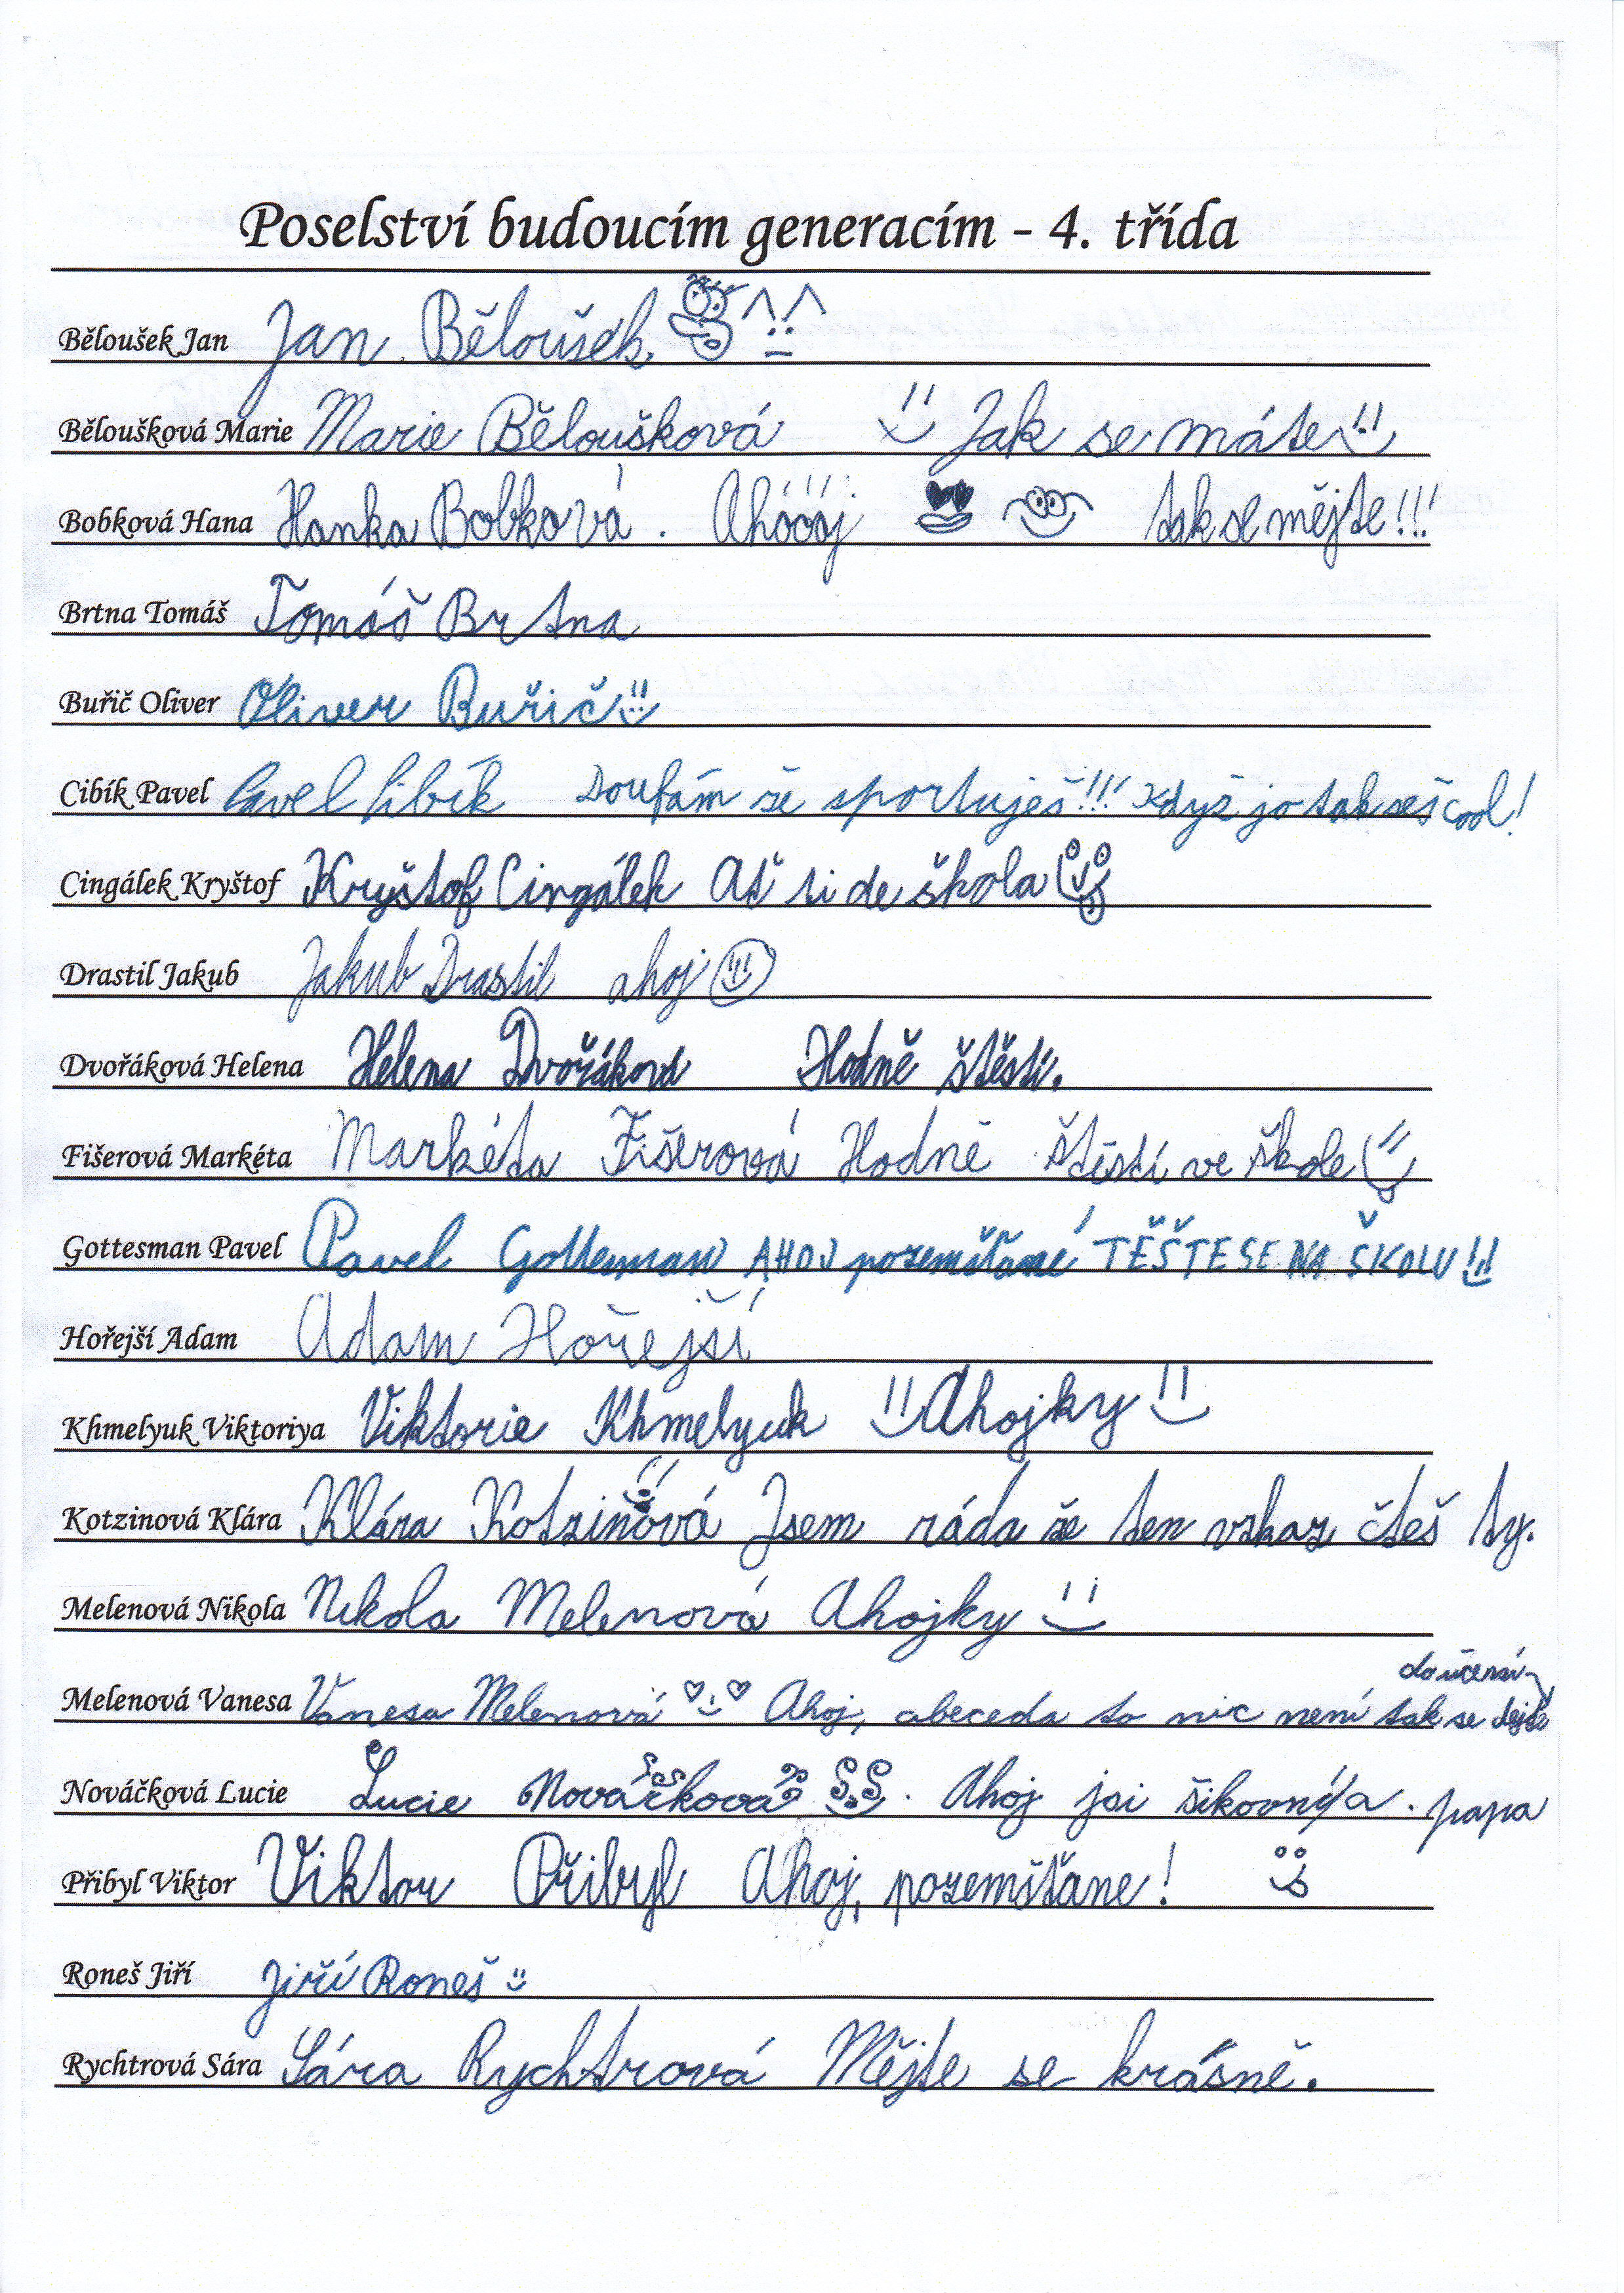 Poselství budoucím generacím - 4. třída
Běloušek Jan Jan Běloušek.
Běloušková Marie Marie Běloušková Jak se máte
Bobková Hana Hanka Bobková. Ahóóój tak se mějte!!!
Brtna Tomáš Tomáš Brtna
Buřič Oliver Oliver Buřič
Cibík Pavel Pavel Cibík Doufám že sportuješ!!! Když jo tak seš cool!
Cingálek Kryštof Kryštof Cingálek Ať ti de škola
Drastil Jakub Jakub Drastil ahoj
Dvořáková Helena Helena Dvořáková Hodně štěstí.
Fišerová Markéta Markéta Fišerová Hodně štěstí ve škole
Gottesman Pavel Pavel Gottesman AHOJ pozemšťané TĚŠTE SE NA ŠKOLU!!
Hořejší Adam Adam Hořejší
Khmelyuk Viktoriya Viktorie Khmelyuk Ahojky
Kotzinová Klára Klára Kotzinová Jsem ráda že ten vzkaz čteš ty.
Melenová Nikola Nikola Melenová Ahojky
Melenová Vanesa Vanesa Melenová Ahoj, abeceda to nic není tak se dejte do učení
Nováčková Lucie Lucie Nováčková Ahoj jsi šikovný/a. papa
Přibyl Viktor Viktor Přibyl Ahoj, pozemšťane!
Roneš Jiří Jiří Roneš
Rychtrová Sára Sára Rychtrová Mějte se krásně.